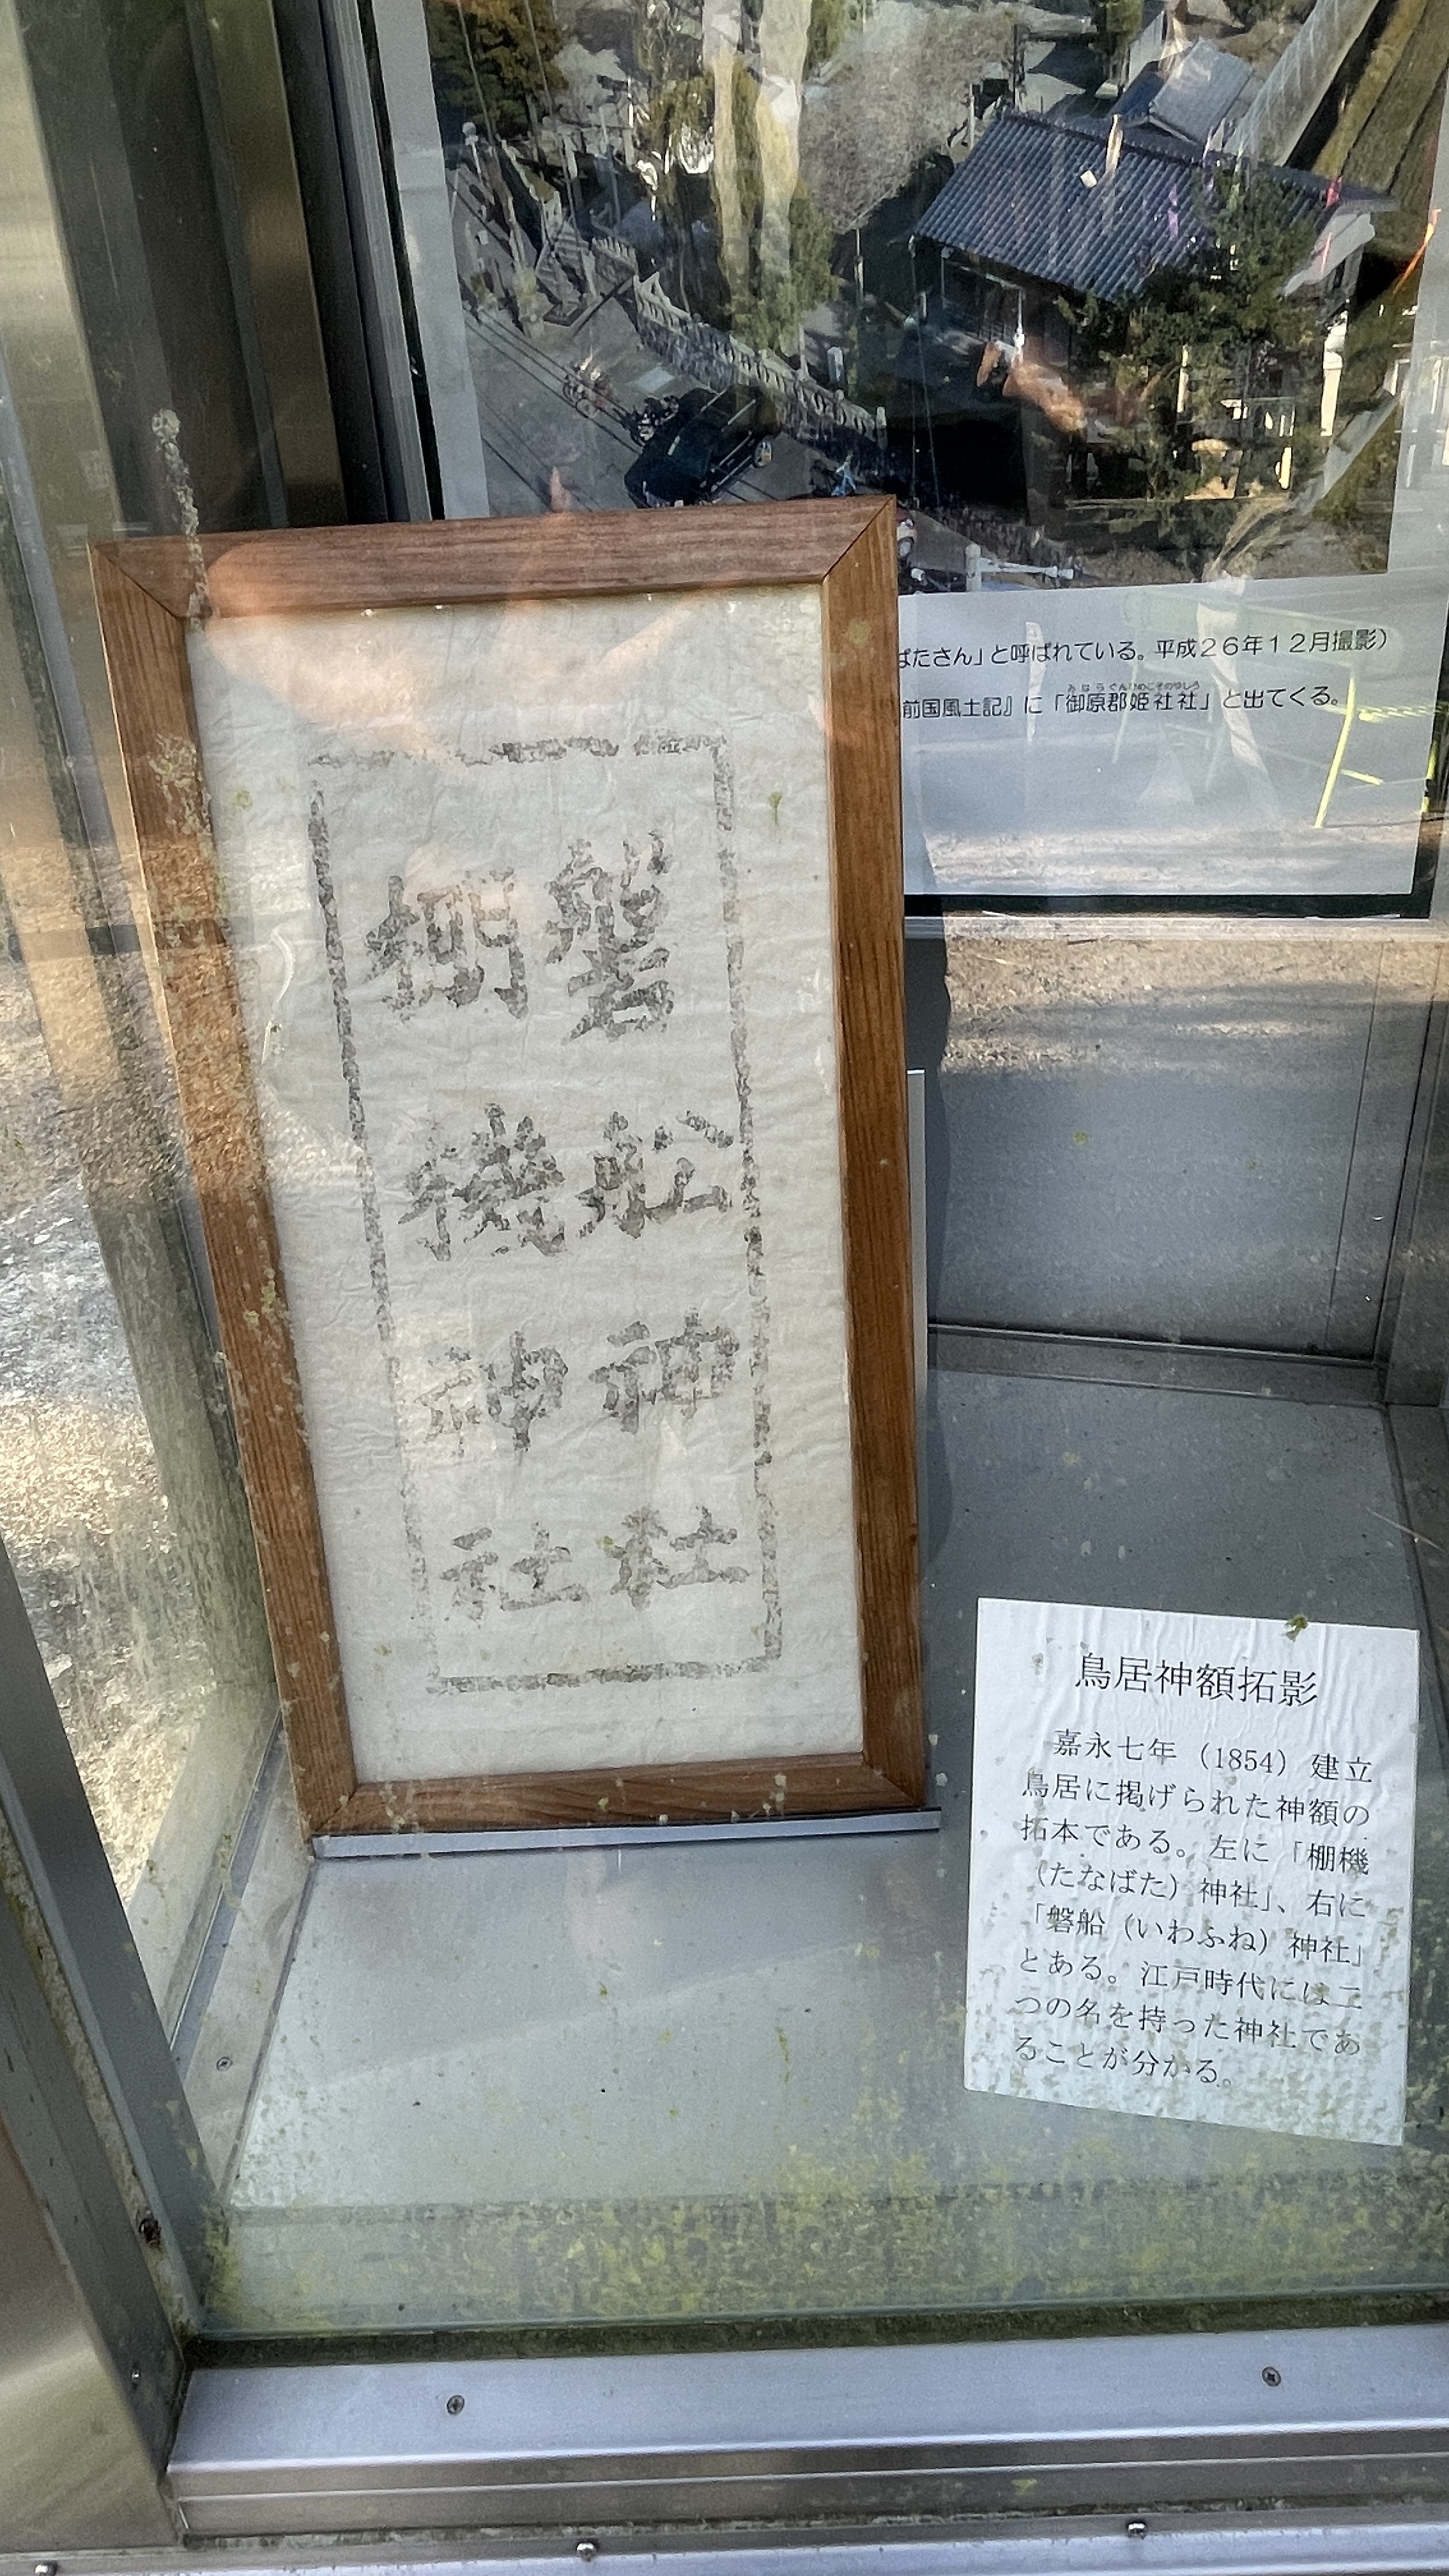 ばたさん」と呼ばれている。平成26年12月撮影）
前国風土記』に「御原郡姫社社」と出てくる。
磐船神社
棚機神社
鳥居神額拓影
嘉永七年（1854）建立
鳥居に掲げられた神額の
拓本である。左に「棚機
（たなばた）神社」、右に
「磐船（いわふね）神社」
とある。江戸時代には二
つの名を持った神社であ
ることが分かる。